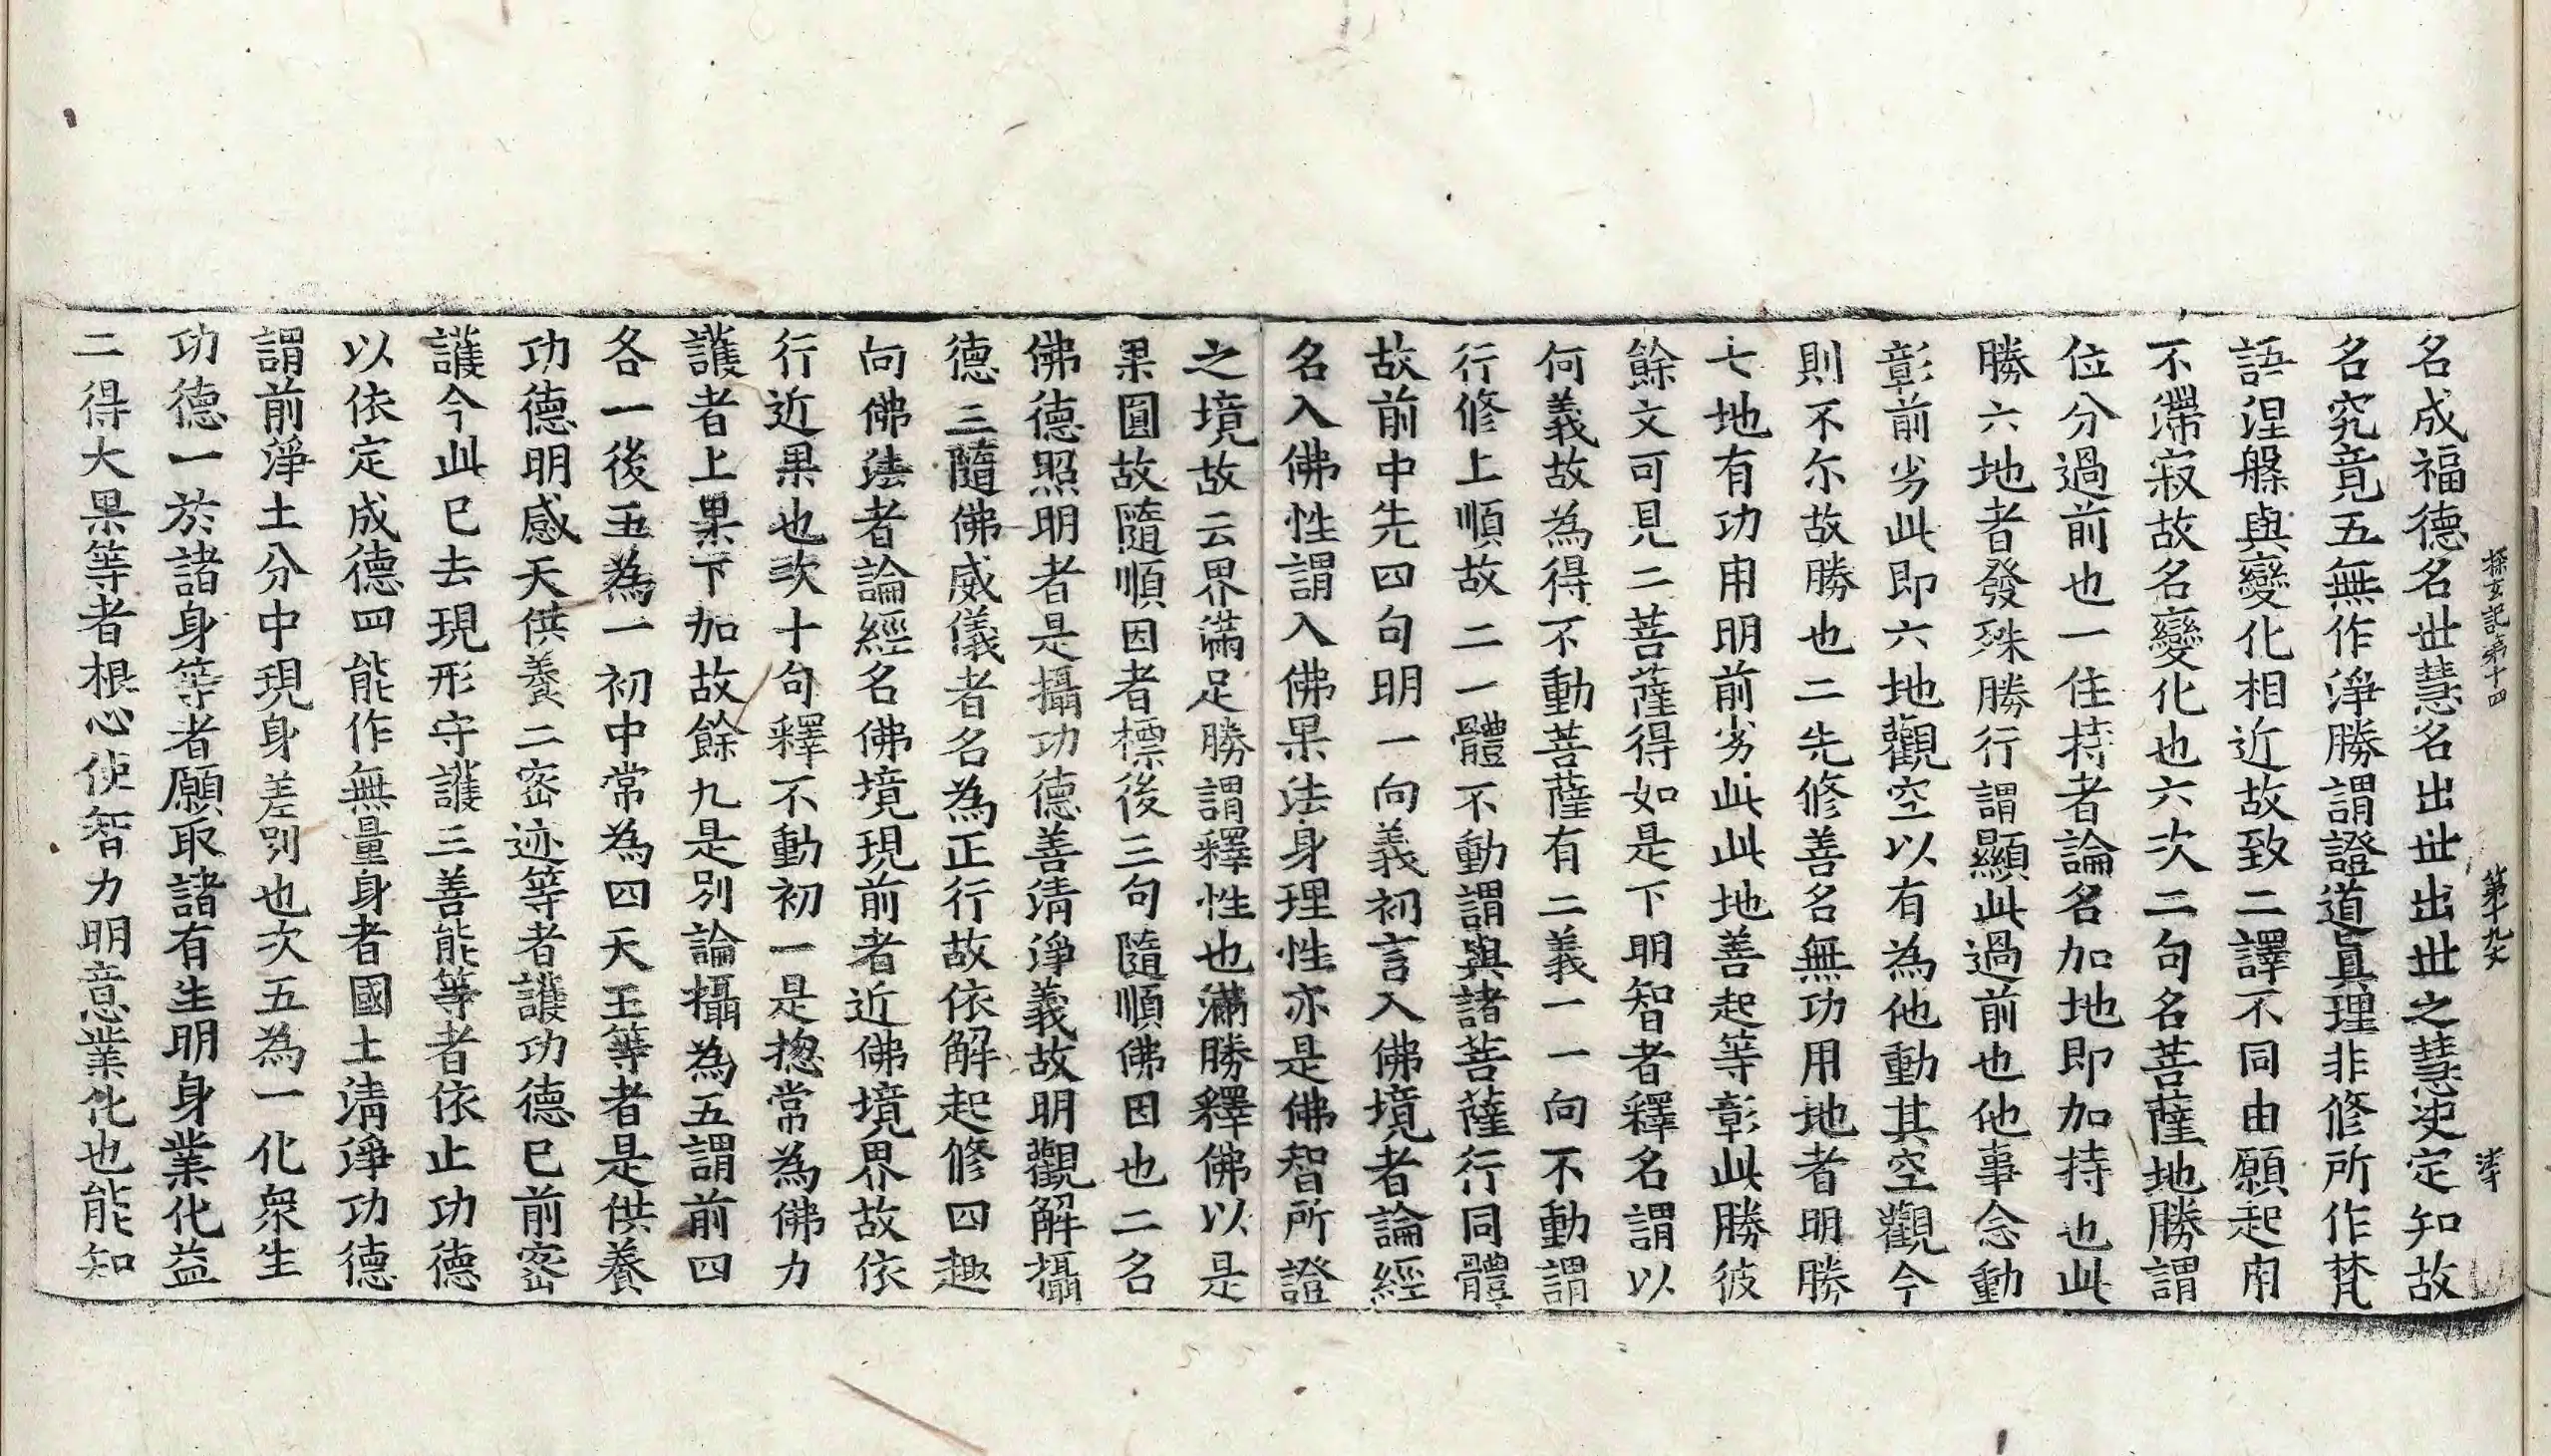 探玄記第十四 第十九丈
名成福德名世慧名出世出世之慧決定知故
名究竟五無作淨勝謂證道真理非修所作梵
語涅槃與變化相近故致二譯不同由願起用
不滯寂故名變化也六次二句名菩薩地勝謂
位分過前也一住持者論名加地即加持也此
勝六地者發殊勝行謂顯此過前也他事念動
彰前劣此即六地觀空以有為他動其空觀今
則不尔故勝也二先修善名無功用地者明勝
七地有功用明前劣此此地善起等彰此勝彼
餘文可見二菩薩得如是下明智者釋名謂以
何義故為得不動菩薩有二義一一向不動謂
行修上順故二一體不動謂與諸菩薩行同體
故前中先四句明一向義初言入佛境者論經
名入佛性謂入佛果法身理性亦是佛智所證
之境故云界滿足勝謂釋性也滿勝釋佛以是
果圓故隨順因者標後三句隨順佛因也二名
佛德照明者是攝功德善清淨義故明觀解攝
德三隨佛威儀者名為正行故依解起修四趣
向佛法者論經名佛境現前者近佛境界故依
行近果也次十句釋不動初一是揔常為佛力
護者上果下加故餘九是別論攝為五謂前四
各一後五為一初中常為四天王等者是供養
功德明感天供養二密迹等者護功德已前密
護今此已去現形守護三善能等者依止功德
以依定成德四能作無量身者國土清淨功德
謂前淨土分中現身差別也次五為一化衆生
功德一於諸身等者願取諸有生明身業化益
二得大果等者根心使智力明意業化也能知